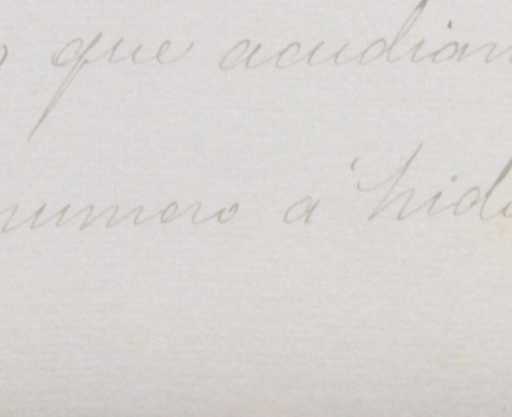 que acudian
numero a hid